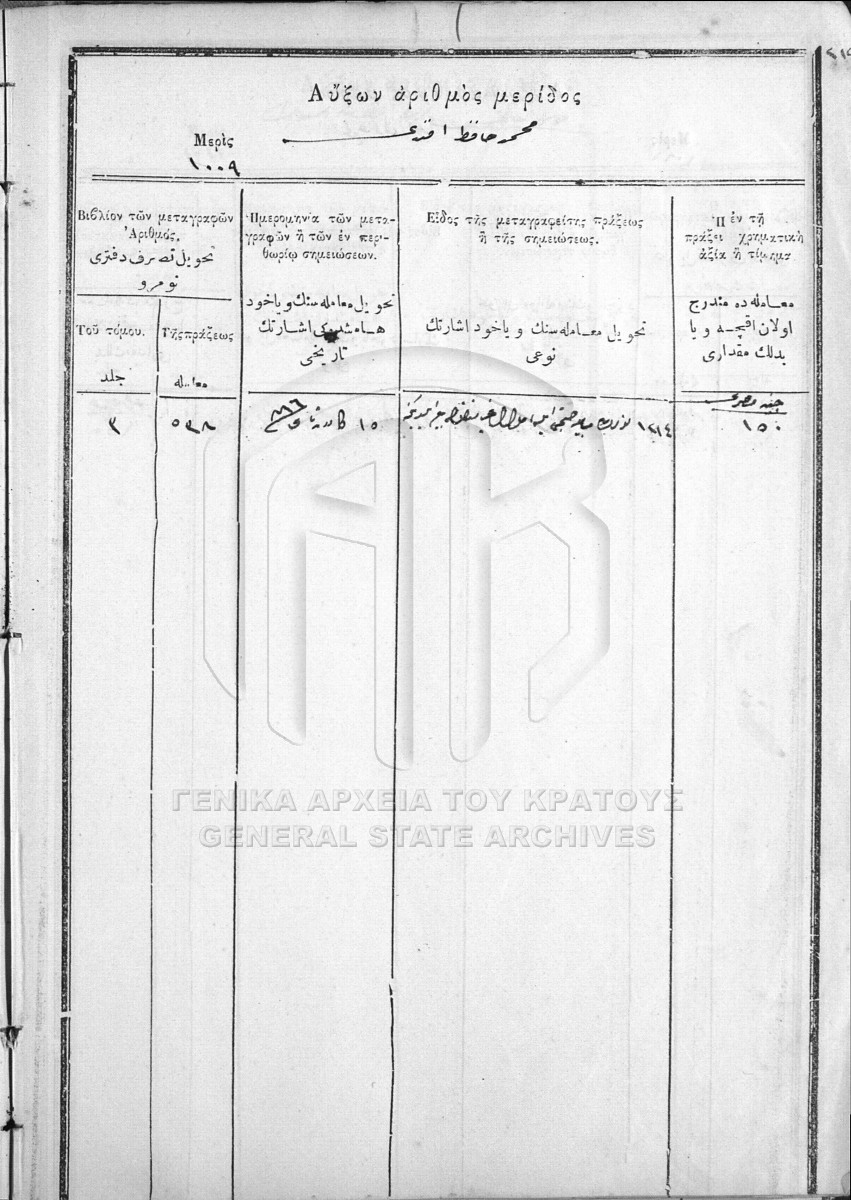 Αὔξων ἀριθμὸς μερίδος
محمد حافظ افندی
Μερὶς
١٠٠٩
Βιβλίον τῶν μεταγραφῶν
Ἀριθμός.
تحویل تصرف دفتری
نومرو
Τοῦ τόμου.
جلد
Τῆς πράξεως
معامله
Ἡμερομηνία τῶν μετα-
γραφῶν ἢ τῶν ἐν περι-
θωρίῳ σημειώσεων.
تحویل معامله سنك ویاخود
هامشنده کی اشارتك
تاریخی
Εἶδος τῆς μεταγραφείσης πράξεως
ἢ τῆς σημειώσεως.
تحویل معامله سنك ویاخود اشارتك
نوعی
Ἡ ἐν τῇ
πράξει χρηματικὴ
ἀξία ἢ τίμημα
معامله ده مندرج
اولان اقچه ویا
بدلك مقداری
٣
٥٣٨
١٥
١٣١٤
١٥٠
ΓΕΝΙΚΑ ΑΡΧΕΙΑ ΤΟΥ ΚΡΑΤΟΥΣ
GENERAL STATE ARCHIVES